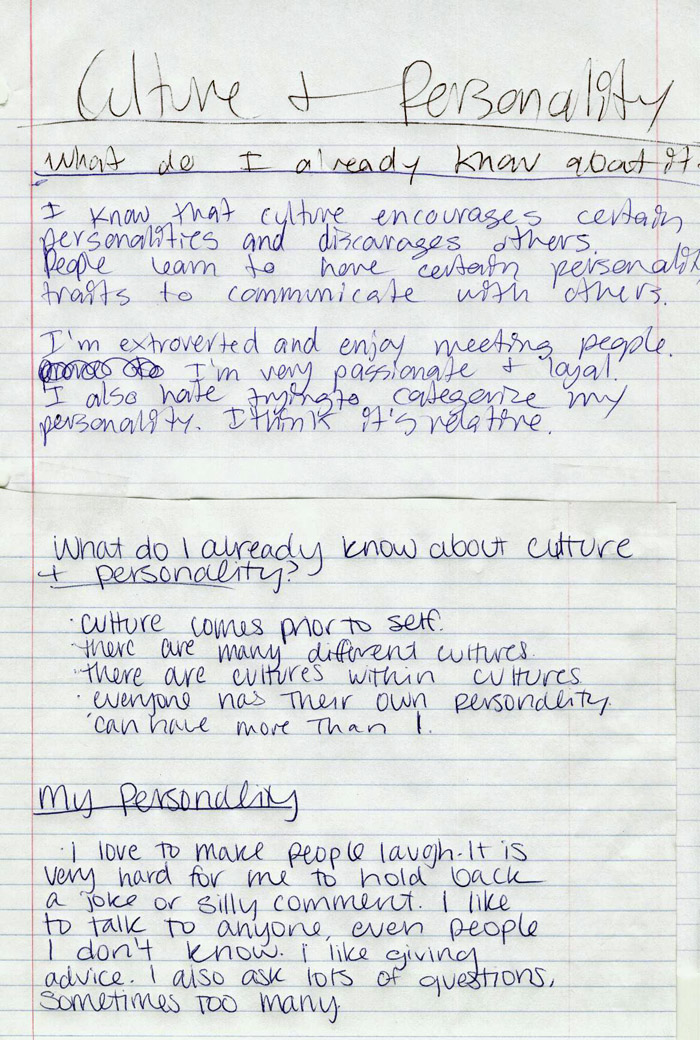 Culture + Personality
What do I already know about it?
I know that culture encourages certain
personalities and discourages others.
People learn to have certain personality
traits to communicate with others.
I'm extroverted and enjoy meeting people.
I'm very passionate + loyal.
I also hate trying to categorize my
personality. I think it's relative.
What do I already know about culture
+ personality?
· culture comes prior to self.
· there are many different cultures.
· there are cultures within cultures
· everyone has their own personality.
can have more than 1.
My Personality
· I love to make people laugh. It is
very hard for me to hold back
a joke or silly comment. I like
to talk to anyone, even people
I don't know. i like giving
advice. I also ask lots of questions,
sometimes too many.